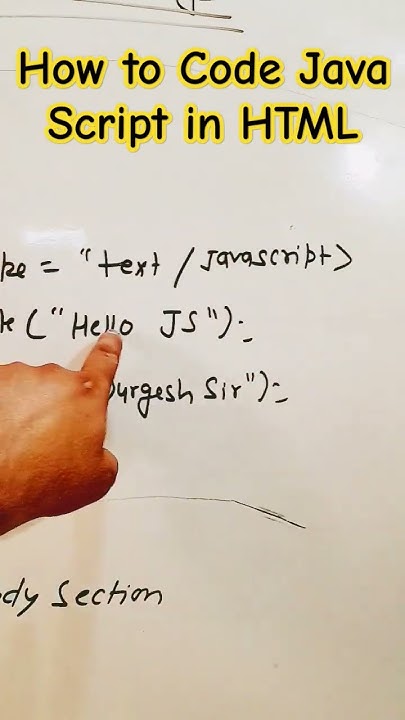 How to Code Java
Script in HTML
pe = "text / Javascript>
te ("Hello JS");
Durgesh Sir");
ody Section